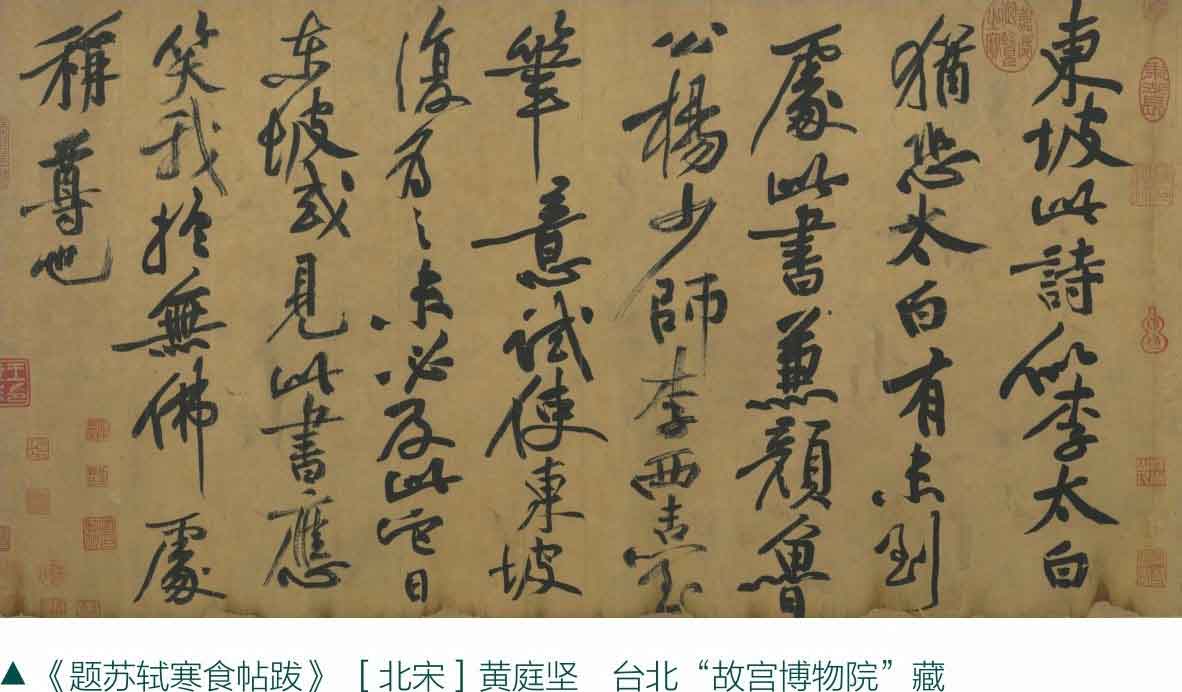 東坡此詩似李太白
猶恐太白有未到
處此書兼顏魯
公楊少師李西臺
筆意試使東坡
復為之未必及此它日
东坡或見此書應
笑我於無佛處
稱尊也
▲《题苏轼寒食帖跋》 [北宋] 黄庭坚 台北“故宫博物院”藏